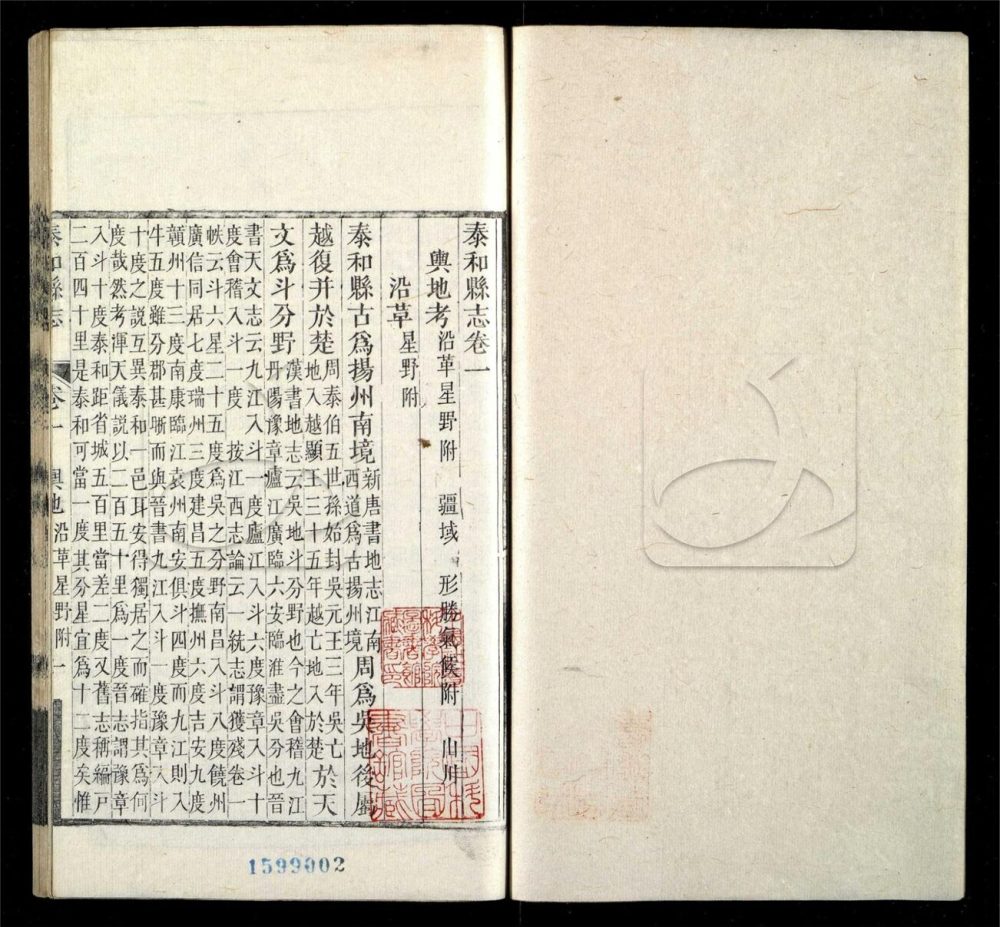 泰和縣志卷一
輿地考 沿革星野附 疆域 形勝氣候附 山川
沿革 星野附
泰和縣古爲揚州南境 新唐書地志江南
西道爲古揚州境 周爲吳地後屬
越復并於楚 周泰伯五世孫始封吳元王三年吳亡
地入越顯王三十五年越亡地入於楚 於天
文爲斗分野 漢書地志云吳地斗分野也今之會稽九江
丹陽豫章廬江廣臨六安臨淮盡吳分也晉
書天文志云九江入斗一度廬江入斗六度豫章入斗十
度會稽入斗一度 按江西志論云一統志謂獲殘卷一
帙云斗六星二十五度爲吳之分野南昌入斗八度饒州
廣信同居七度瑞州三度建昌五度撫州六度吉安九度
贛州十三度南康臨江袁州南安俱斗四度而九江則入
牛五度雖分郡甚晣而與晉書九江入斗一度豫章入斗
十度之說互異泰和一邑耳安得獨居之而確指其爲何
度哉然考渾天儀說以二百五十里爲一度晉志謂豫章
入斗十度泰和距省城五百里當差二度又舊志稱編戸
二百四十里是泰和可當一度其分星宜爲十二度矣惟
泰和縣志 卷一 輿地 沿革星野附 一
1599002